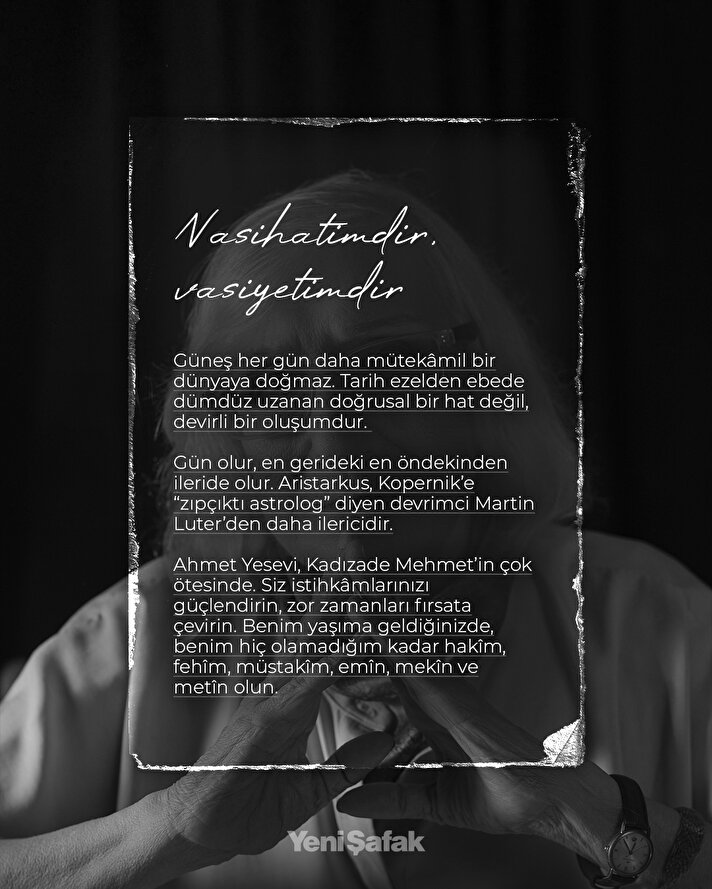 Nasihatimdir,
vasiyetimdir
Güneş her gün daha mütekâmil bir
dünyaya doğmaz. Tarih ezelden ebede
dümdüz uzanan doğrusal bir hat değil,
devirli bir oluşumdur.
Gün olur, en gerideki en öndekinden
ileride olur. Aristarkus, Kopernik’e
“zıpçıktı astrolog” diyen devrimci Martin
Luter’den daha ilericidir.
Ahmet Yesevi, Kadızade Mehmet’in çok
ötesinde. Siz istihkâmlarınızı
güçlendirin, zor zamanları fırsata
çevirin. Benim yaşıma geldiğinizde,
benim hiç olamadığım kadar hakîm,
fehîm, müstakîm, emîn, mekîn ve
metîn olun.
YeniŞafak